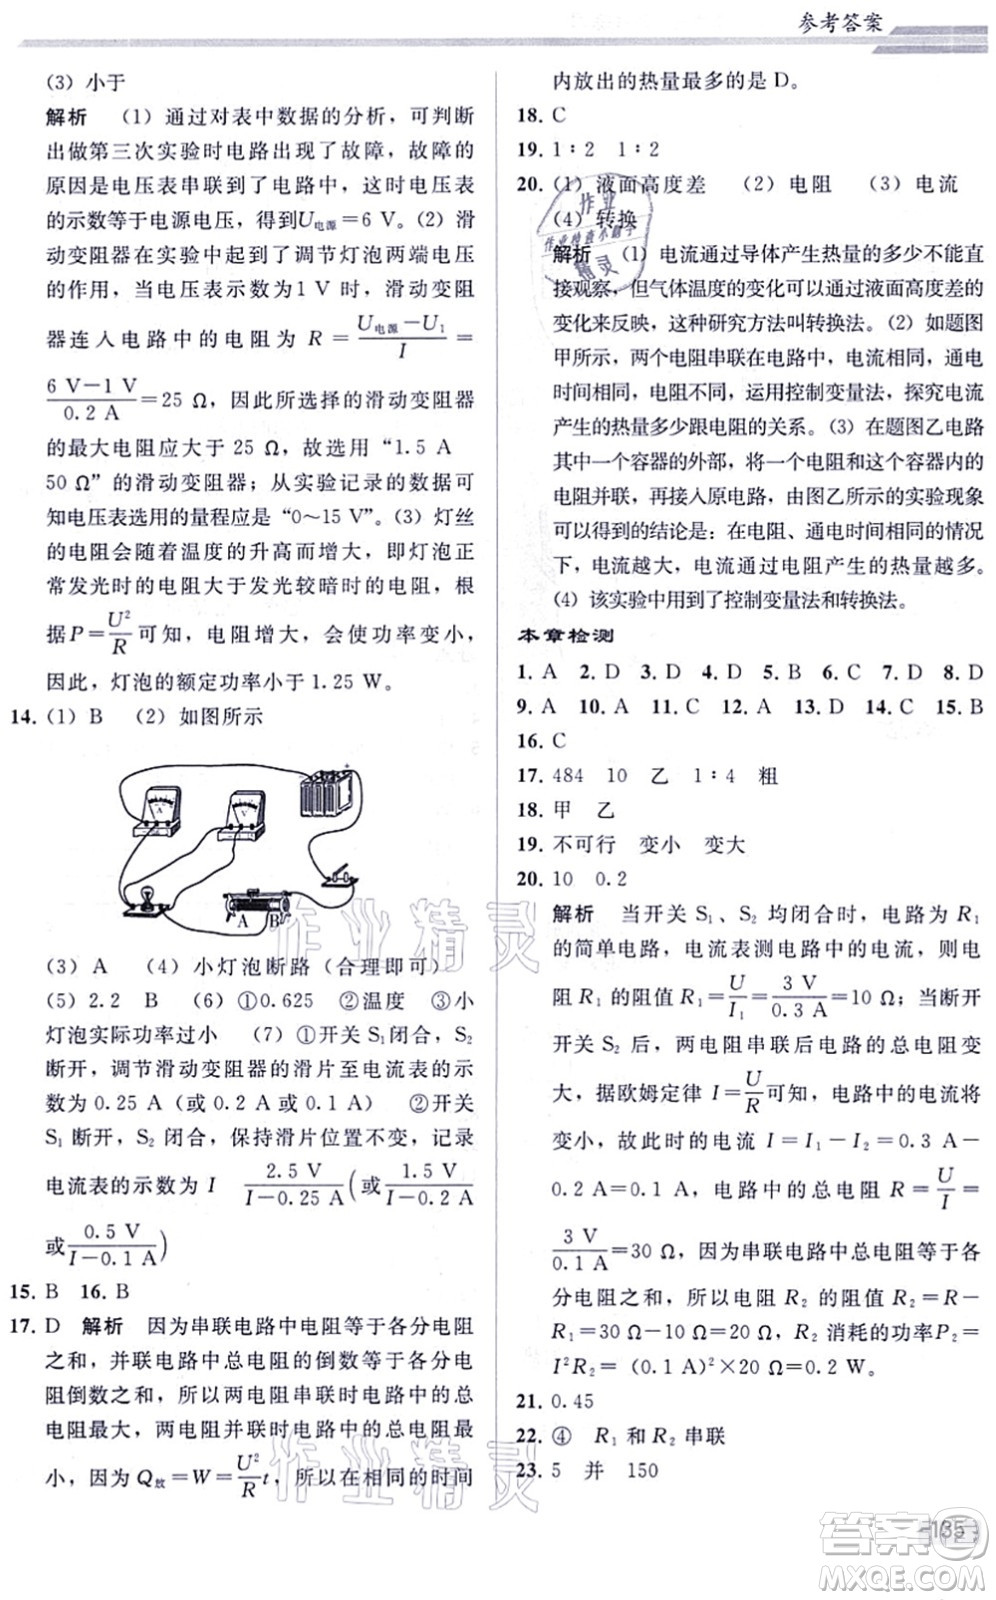 参考答案
(3) 小于
解析 (1) 通过对表中数据的分析，可判断
出做第三次实验时电路出现了故障，故障的
原因是电压表串联到了电路中，这时电压表
的示数等于电源电压，得到U电源＝6 V。(2) 滑
动变阻器在实验中起到了调节灯泡两端电压
的作用，当电压表示数为1 V 时，滑动变阻
器连入电路中的电阻为 R＝(U电源－U₁)/I＝
(6 V－1 V)/(0.2 A)＝25 Ω，因此所选择的滑动变阻器
的最大电阻应大于 25 Ω，故选用“1.5 A
50 Ω”的滑动变阻器；从实验记录的数据可
知电压表选用的量程应是“0～15 V”。(3) 灯丝
的电阻会随着温度的升高而增大，即灯泡正
常发光时的电阻大于发光较暗时的电阻，根
据P＝U²/R可知，电阻增大，会使功率变小，
因此，灯泡的额定功率小于 1.25 W。
14. (1) B (2) 如图所示
A V
A B
(3) A (4) 小灯泡断路（合理即可）
(5) 2.2 B (6) ①0.625 ②温度 ③小
灯泡实际功率过小 (7) ①开关 S₁闭合，S₂
断开，调节滑动变阻器的滑片至电流表的示
数为 0.25 A（或 0.2 A或 0.1 A） ②开关
S₁ 断开，S₂ 闭合，保持滑片位置不变，记录
电流表的示数为 I 2.5 V/(I－0.25 A)(或1.5 V/(I－0.2 A)
或0.5 V/(I－0.1 A))
15. B 16. B
17. D 解析 因为串联电路中电阻等于各分电阻
之和，并联电路中总电阻的倒数等于各分电
阻倒数之和，所以两电阻串联时电路中的总
电阻最大，两电阻并联时电路中的总电阻最
小，因为 Q放＝W＝U²/R t，所以在相同的时间
内放出的热量最多的是 D。
18. C
19. 1∶2 1∶2
20. (1) 液面高度差 (2) 电阻 (3) 电流
(4) 转换
解析 (1) 电流通过导体产生热量的多少不能直
接观察，但气体温度的变化可以通过液面高度差的
变化来反映，这种研究方法叫转换法。(2) 如题图
甲所示，两个电阻串联在电路中，电流相同，通电
时间相同，电阻不同，运用控制变量法，探究电流
产生的热量多少跟电阻的关系。(3) 在题图乙电路
其中一个容器的外部，将一个电阻和这个容器内的
电阻并联，再接入原电路，由图乙所示的实验现象
可以得到的结论是：在电阻、通电时间相同的情况
下，电流越大，电流通过电阻产生的热量越多。
(4) 该实验中用到了控制变量法和转换法。
本章检测
1. A 2. D 3. D 4. D 5. B 6. C 7. D 8. D
9. A 10. A 11. C 12. A 13. D 14. C 15. B
16. C
17. 484 10 乙 1∶4 粗
18. 甲 乙
19. 不可行 变小 变大
20. 10 0.2
解析 当开关 S₁、S₂ 均闭合时，电路为 R₁
的简单电路，电流表测电路中的电流，则电
阻 R₁ 的阻值 R₁＝U/I₁＝3 V/0.3 A＝10 Ω；当断开
开关 S₂ 后，两电阻串联后电路的总电阻变
大，据欧姆定律 I＝U/R可知，电路中的电流将
变小，故此时的电流 I＝I₁－I₂＝0.3 A－
0.2 A＝0.1 A，电路中的总电阻 R＝U/I＝
3 V/0.1 A＝30 Ω，因为串联电路中总电阻等于各
分电阻之和，所以电阻 R₂ 的阻值 R₂＝R－
R₁＝30 Ω－10 Ω＝20 Ω，R₂ 消耗的功率P₂＝
I²R₂＝(0.1 A)²×20 Ω＝0.2 W。
21. 0.45
22. ④ R₁ 和 R₂ 串联
23. 5 并 150
135
作业精灵
作业精灵
作业
作业检查小助手
精灵
答案圈
MXQE.COM